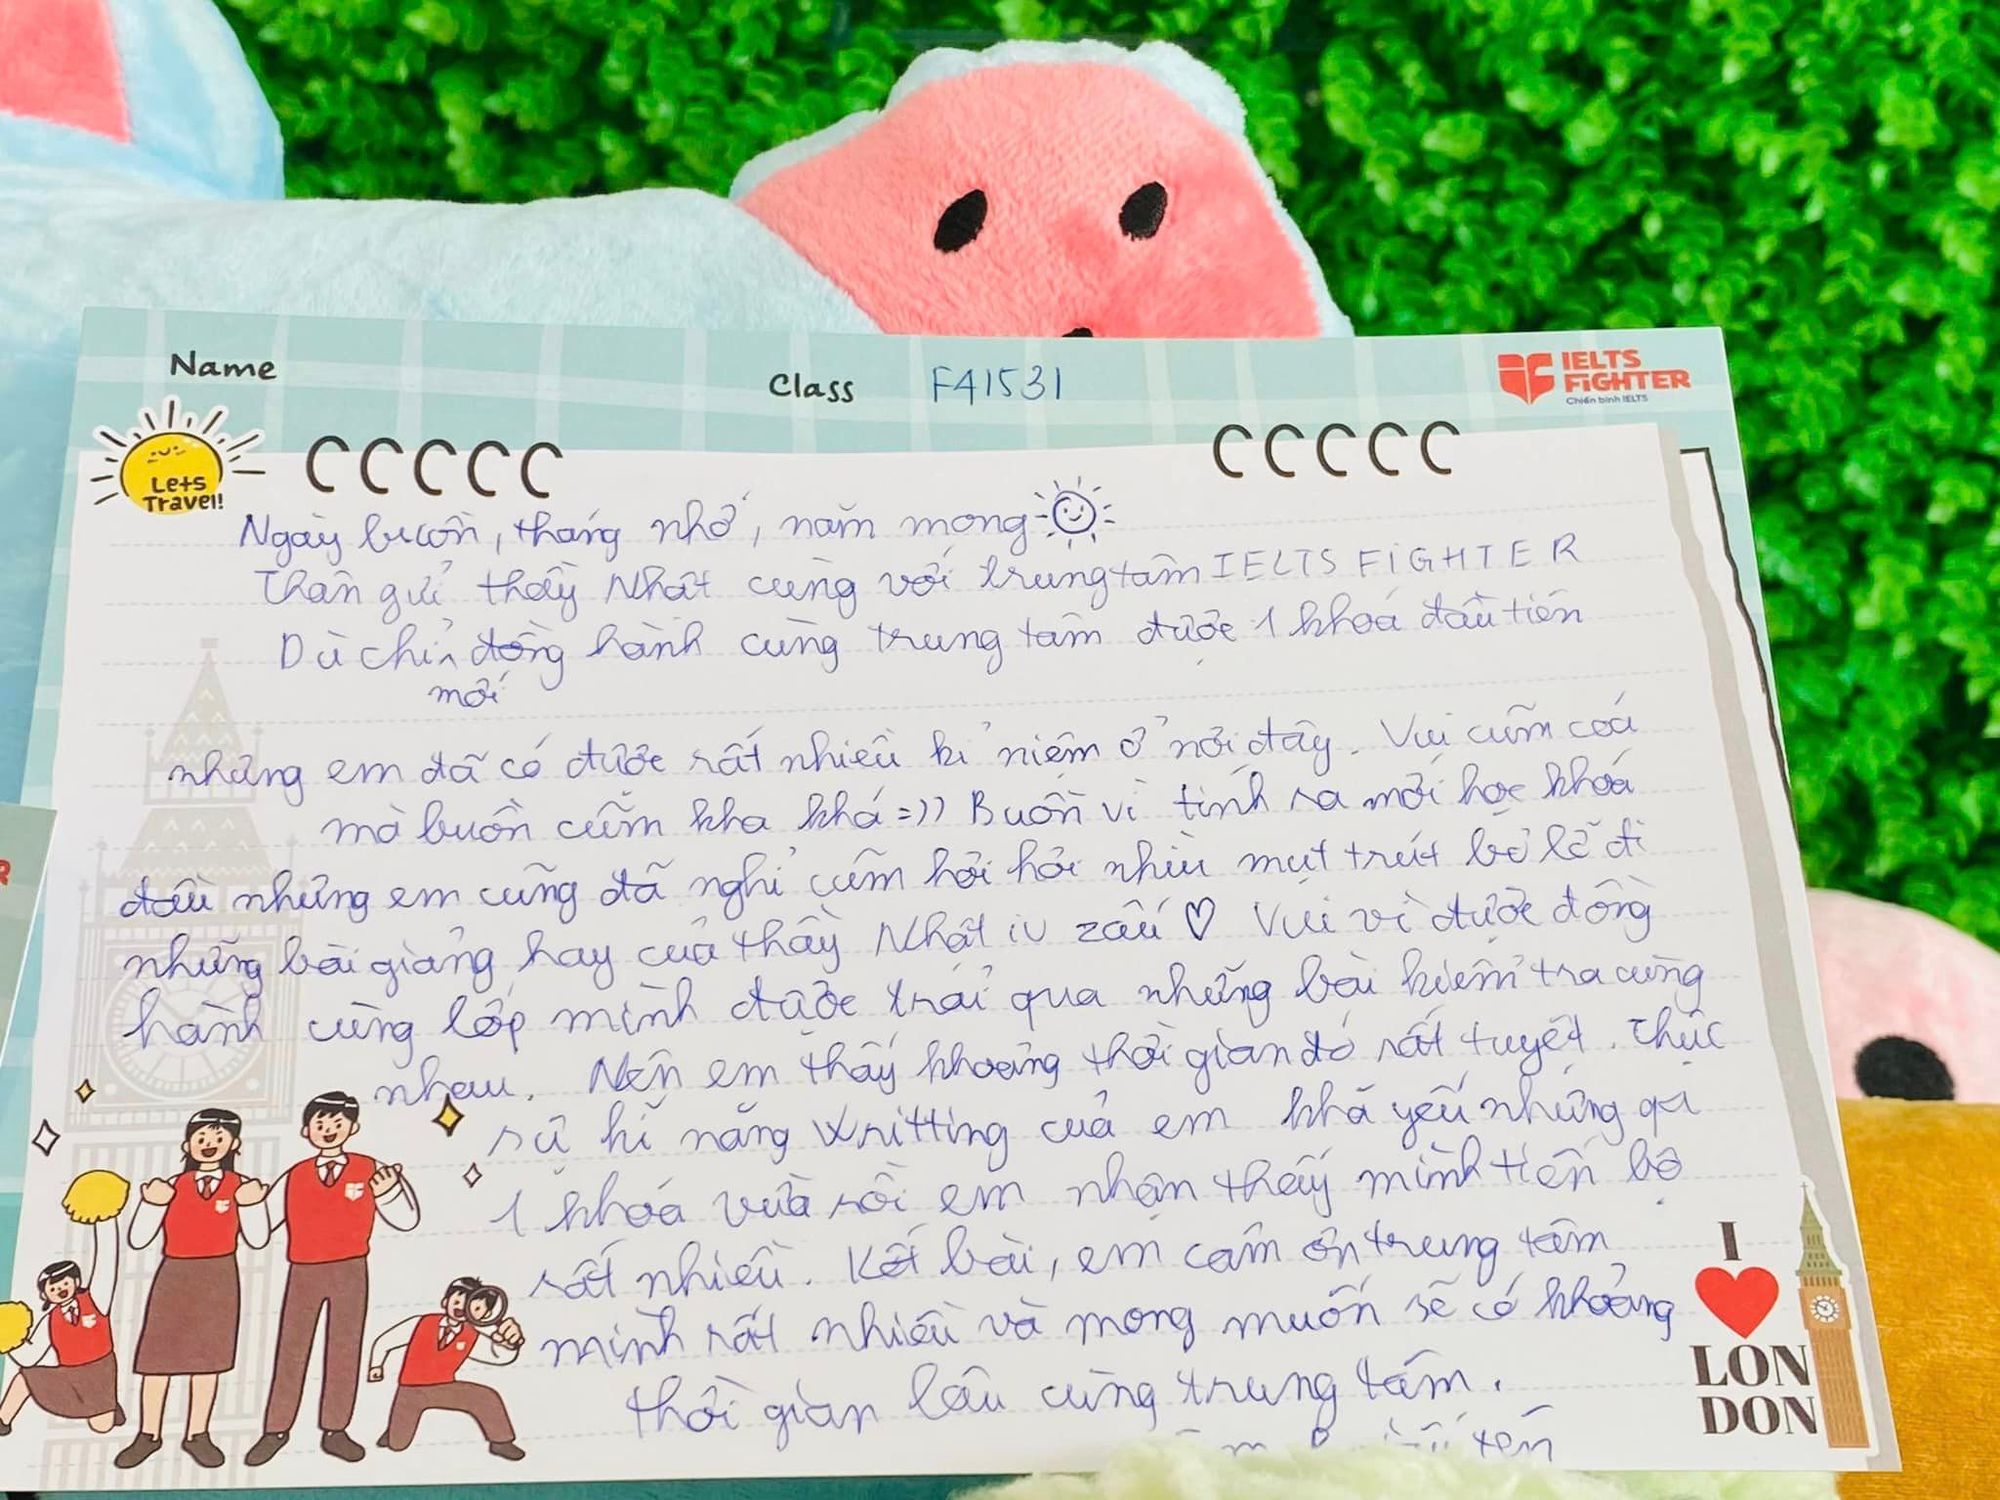 Name
Class F41531
IELTS FiGHTER
Chiến binh IELTS
Lets
Travel!
Ngày buồn, tháng nhớ, năm mong
Thân gửi thầy Nhất cùng với trung tâm IELTS FiGHTER
Dù chỉ mới đồng hành cùng trung tâm được 1 khoá đầu tiên
nhưng em đã có được rất nhiều kỉ niệm ở nơi đây. Vui cũm coá
mà buồn cũm kha khá =)) Buồn vì tính ra mới học khoá
đầu nhưng em cũng đã nghỉ cũm hơi hơi nhìu mụt trút bỏ lỡ đi
những bài giảng hay của thầy Nhất iu zấu ♡ Vui vì được đồng
hành cùng lớp mình được trải qua những bài kiểm tra cùng
nhau. Nên em thấy khoảng thời gian đó rất tuyệt. Thực
sự kĩ năng writting của em khá yếu nhưng qa
1 khoá vừa rồi em nhận thấy mình tiến bộ
rất nhiều. Kết bài, em cảm ơn trung tâm
mình rất nhiều và mong muốn sẽ có khoảng
thời gian lâu cùng trung tâm.
tến
I
LON
DON